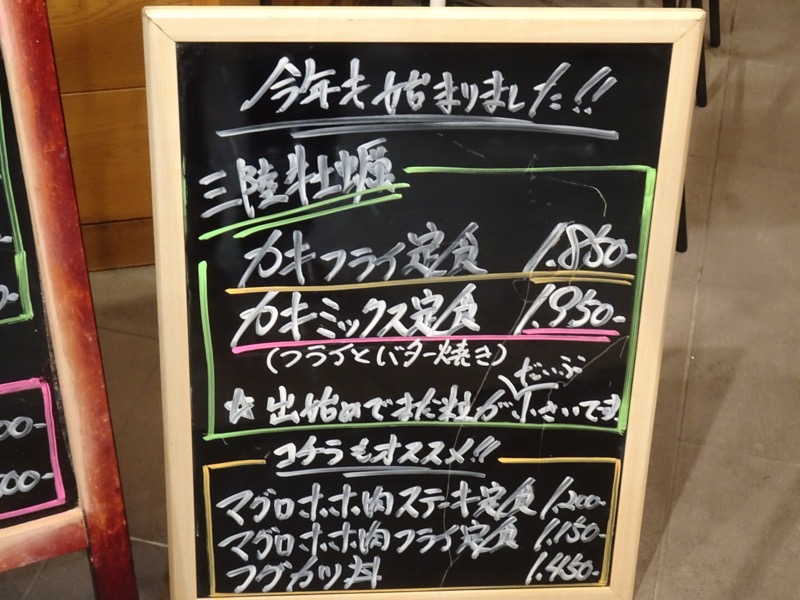 今年も始まりました!!
三陸牡蠣
カキフライ定食 1.850-
カキミックス定食 1.950-
(フライとバター焼き)
だいぶ
☆ 出始めでまだ粒が小さいです
コチラもオススメ!!
マグロホホ肉ステーキ定食 1.200-
マグロホホ肉フライ定食 1.150-
フグカツ丼 1.450-
00-
500-